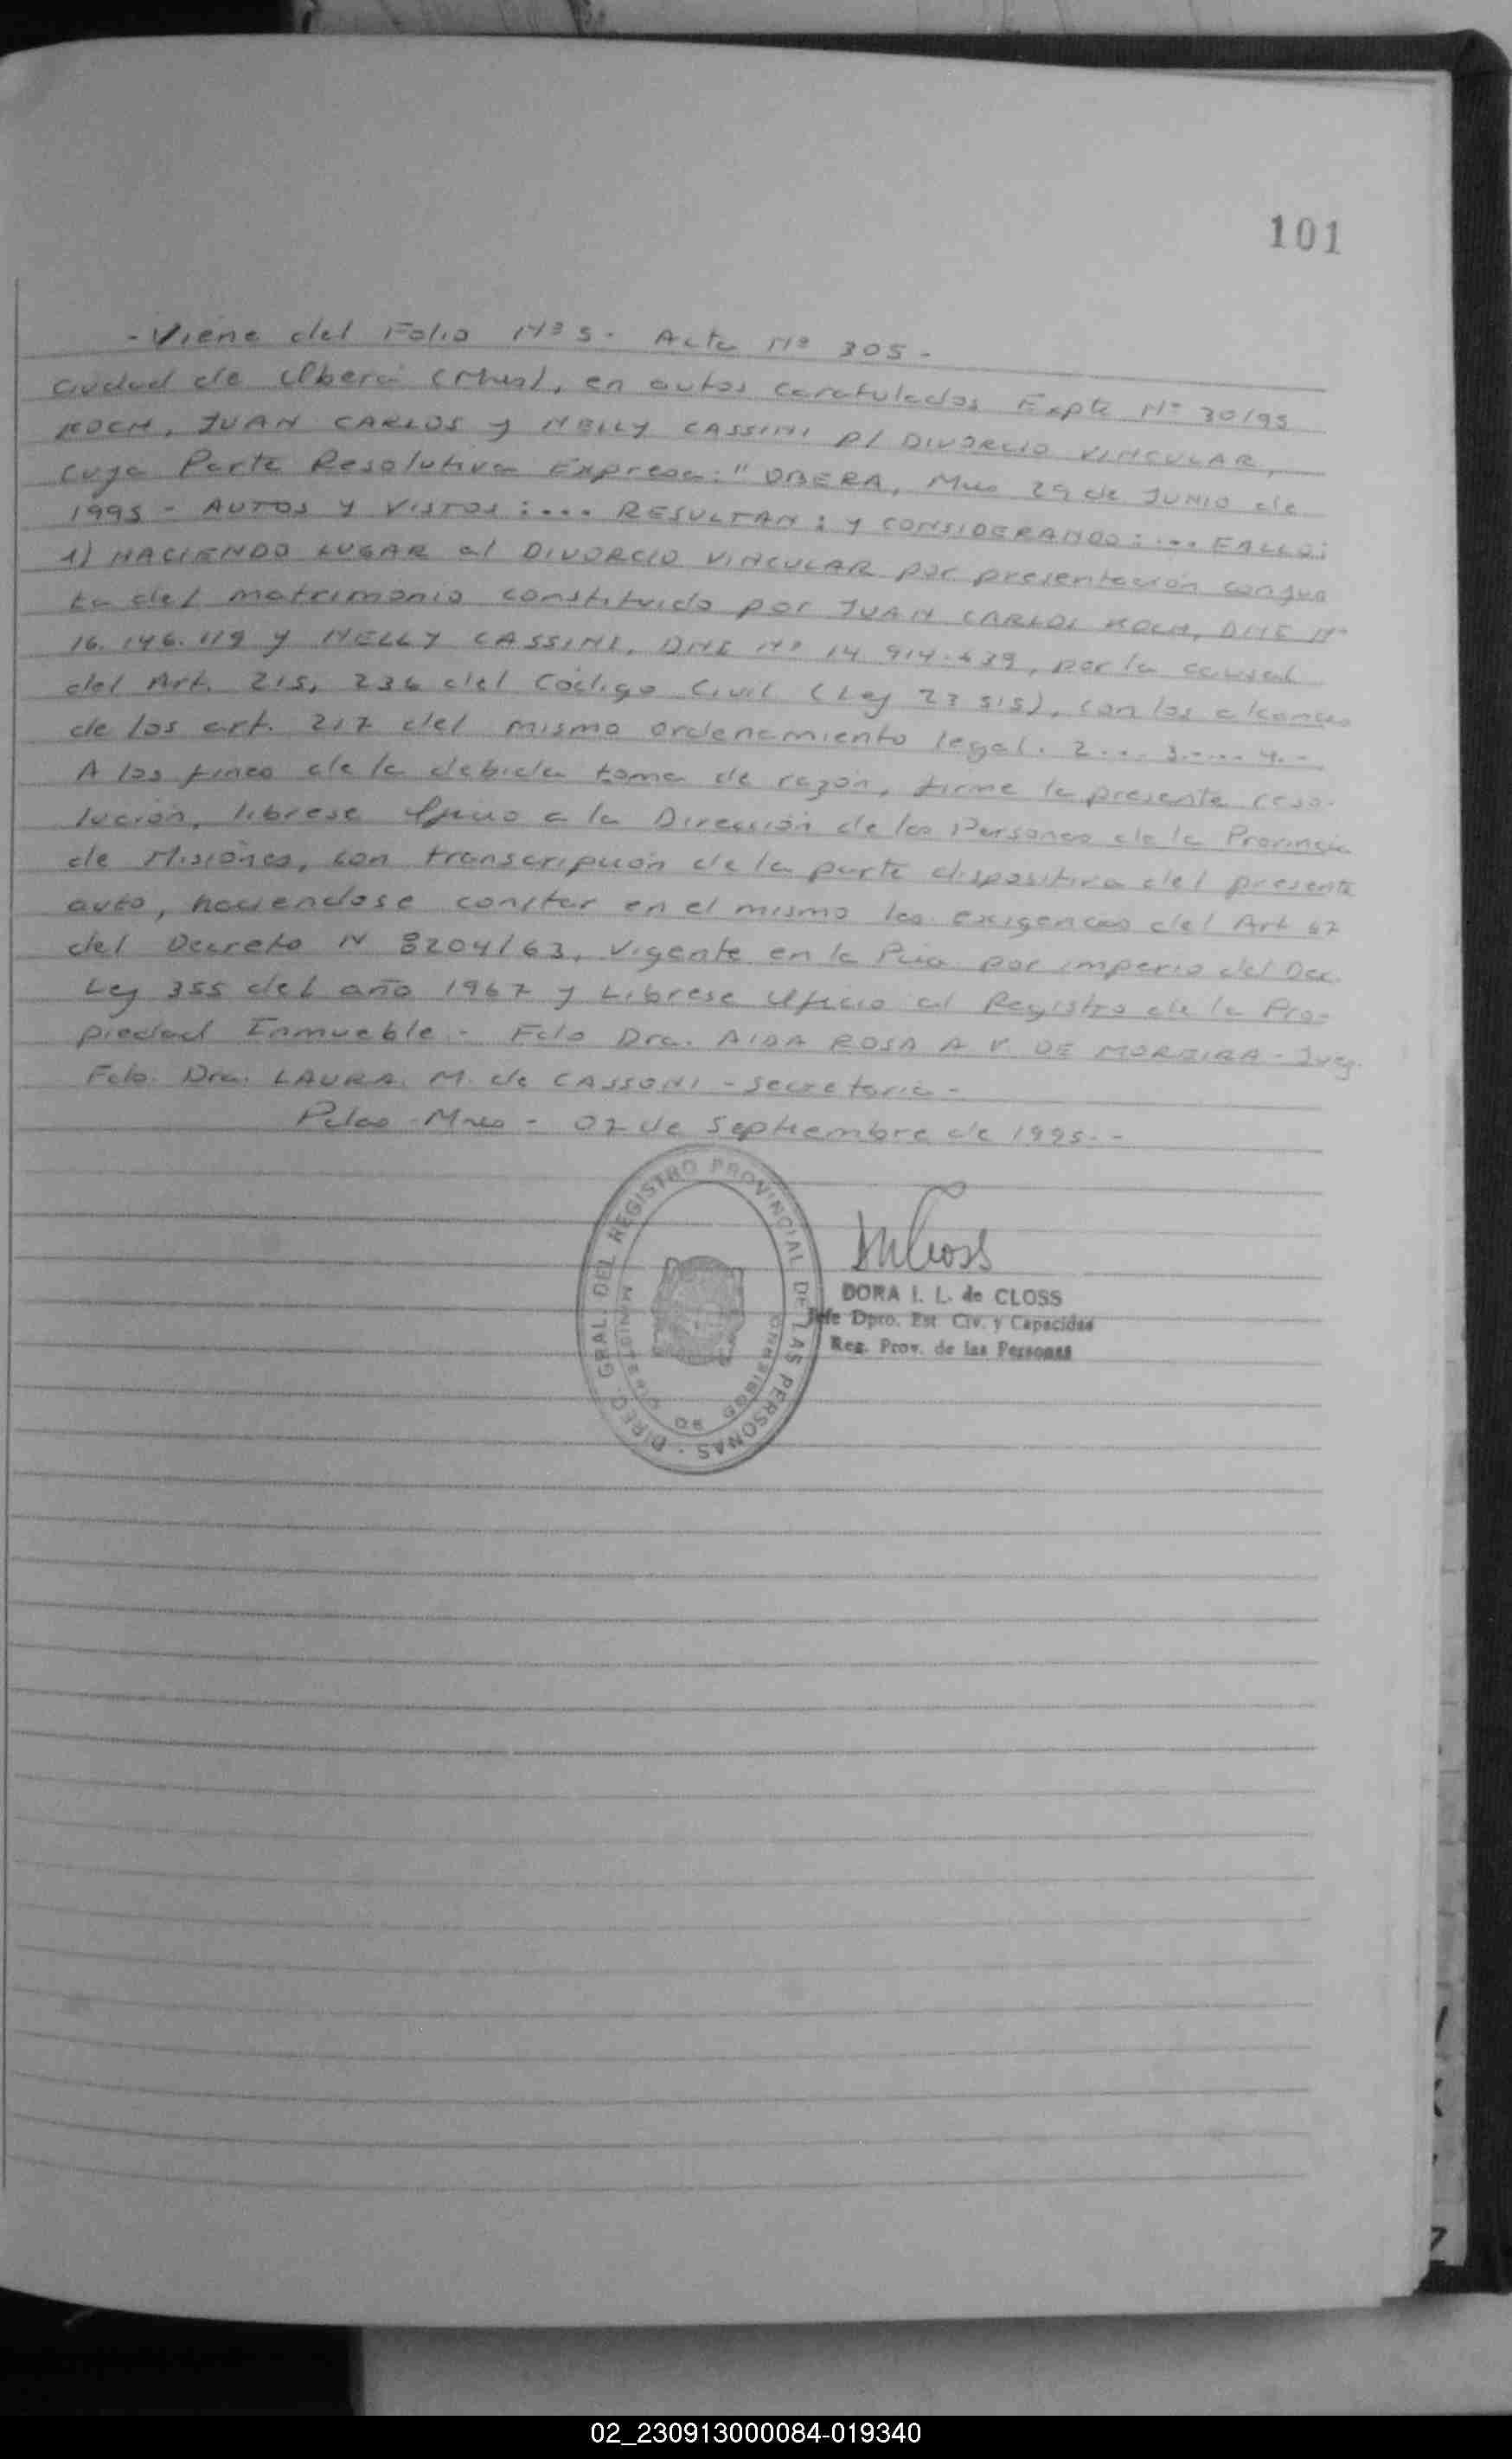 101
- Viene del Folio Nº 5 - Acta Nº 305 -
Ciudad de Oberá (Mnes), en autos caratulados Expte Nº 30/95
KOCH, JUAN CARLOS y NELLY CASSINI P/ DIVORCIO VINCULAR,
cuya Parte Resolutiva Expresa: "OBERA, Mnes 29 de JUNIO de
1995 - AUTOS Y VISTOS:... RESULTAN: Y CONSIDERANDO:... FALLO:
1) HACIENDO LUGAR al DIVORCIO VINCULAR por presentación conjun
ta del matrimonio constituido por JUAN CARLOS KOCH, DNI Nº
16.146.119 y NELLY CASSINI, DNI Nº 14.914.639, por la causal
del Art. 215, 236 del Código Civil (Ley 23 515), con los alcances
de los art. 217 del mismo ordenamiento legal. 2... 3.... 4.-
A los fines de la debida toma de razón, firme la presente reso-
lución, librese Oficio a la Dirección de las Personas de la Provincia
de Misiones, con transcripción de la parte dispositiva del presente
auto, haciendose constar en el mismo las exigencias del Art 67
del Decreto N 8204/63, Vigente en la Pcia por imperio del Dec.
Ley 355 del año 1967 y Librese Oficio al Registro de la Pro-
piedad Inmueble - Fdo Dra. AIDA ROSA A V. DE MOREIRA - Juez.
Fdo. Dra. LAURA. M. de CASSONI - Secretaria -
Pdas - Mnes - 07 de Septiembre de 1995 - -
DIREC. GRAL. DEL REGISTRO PROVINCIAL DE LAS PERSONAS
MINISTERIO DE GOBIERNO
DORA I. L. de CLOSS
Jefe Dpto. Est. Civ. y Capacidad
Reg. Prov. de las Personas
02_230913000084-019340